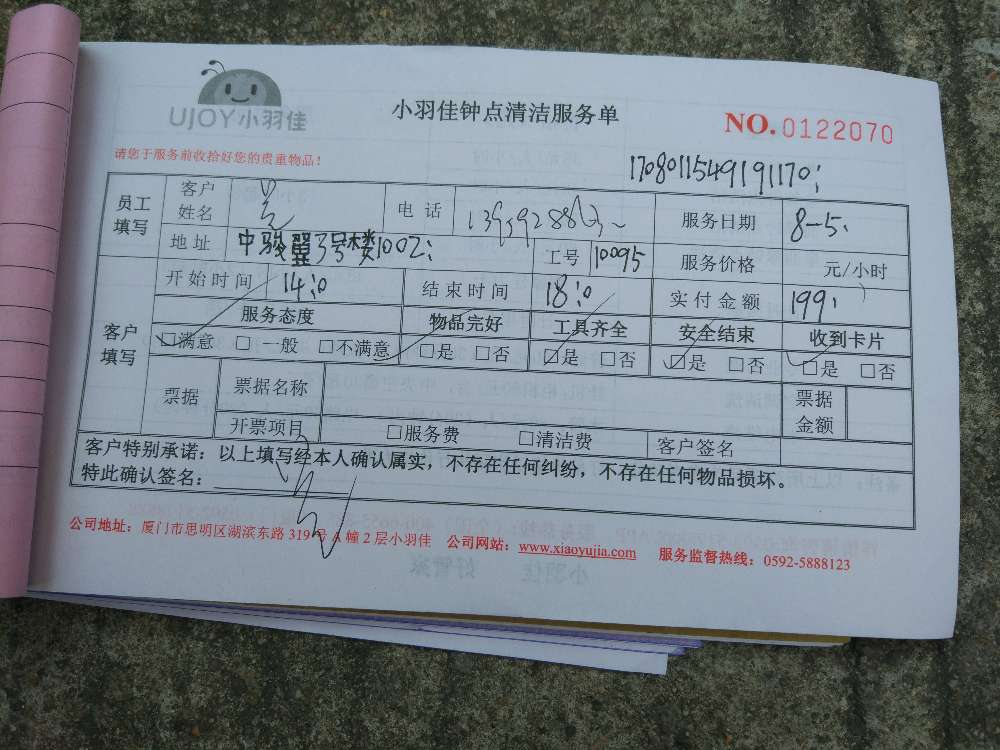 UJOY小羽佳
小羽佳钟点清洁服务单
NO. 0122070
请您于服务前收拾好您的贵重物品！
1708011549191170
员工填写 客户姓名 电话 服务日期 8-5
地址 中骏 3号楼1002 工号 10095 服务价格 元/小时
客户填写 开始时间 14:0 结束时间 18:0 实付金额 199
服务态度 物品完好 工具齐全 安全结束 收到卡片
□满意 □一般 □不满意 □是 □否 □是 □否 □是 □否 □是 □否
票据 票据名称 票据金额
开票项目 □服务费 □清洁费 客户签名
客户特别承诺：以上填写经本人确认属实，不存在任何纠纷，不存在任何物品损坏。
特此确认签名：
公司地址：厦门市思明区湖滨东路 319 号 A 幢 2 层小羽佳 公司网站：www.xiaoyujia.com 服务监督热线：0592-5888123